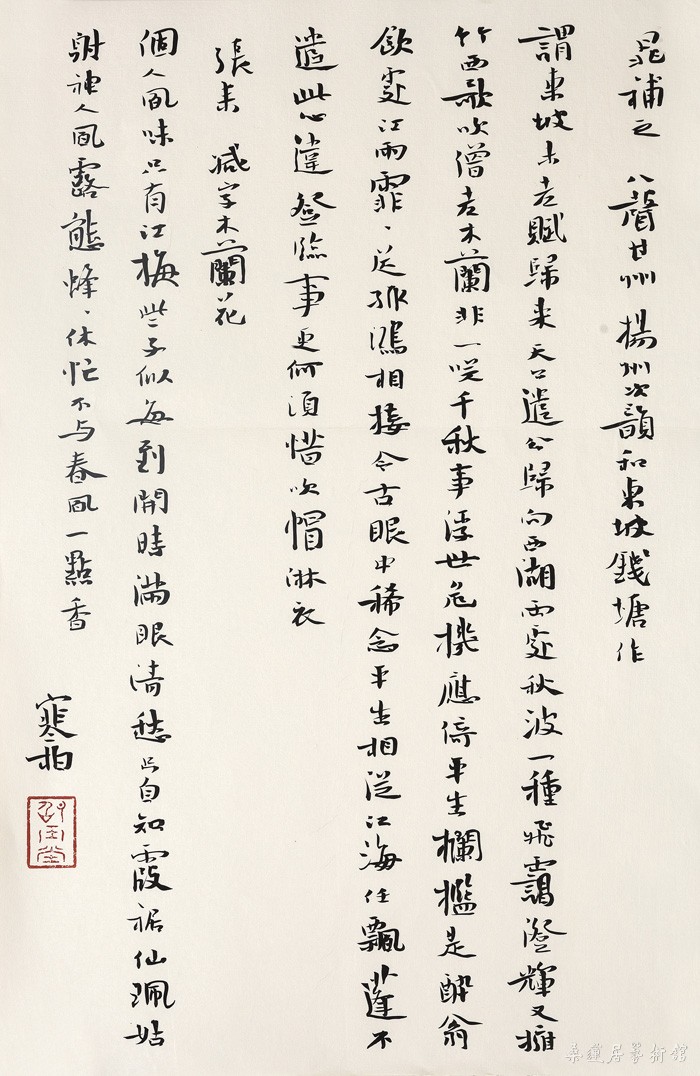 晁補之 八聲甘州 揚州次韻和東坡錢塘作
謂東坡未老賦歸来天口遣公歸向西湖兩處秋波一種飛靄澄輝又擁
竹西歌吹僧老木蘭非一咲千秋事浮世危機應倚平生欄檻是醉翁
飲處江雨霏、送孤鴻相接今古眼中稀念平生相從江海任飄蓬不
遣此心違登臨事更何須惜吹帽淋衣
張耒 减字木蘭花
個人風味只有江梅些子似每到開時滿眼清愁只自知霞裾仙珮姑
射神人風露態蜂、休忙不与春風一點香
寒柏
桑蓮居藝術館